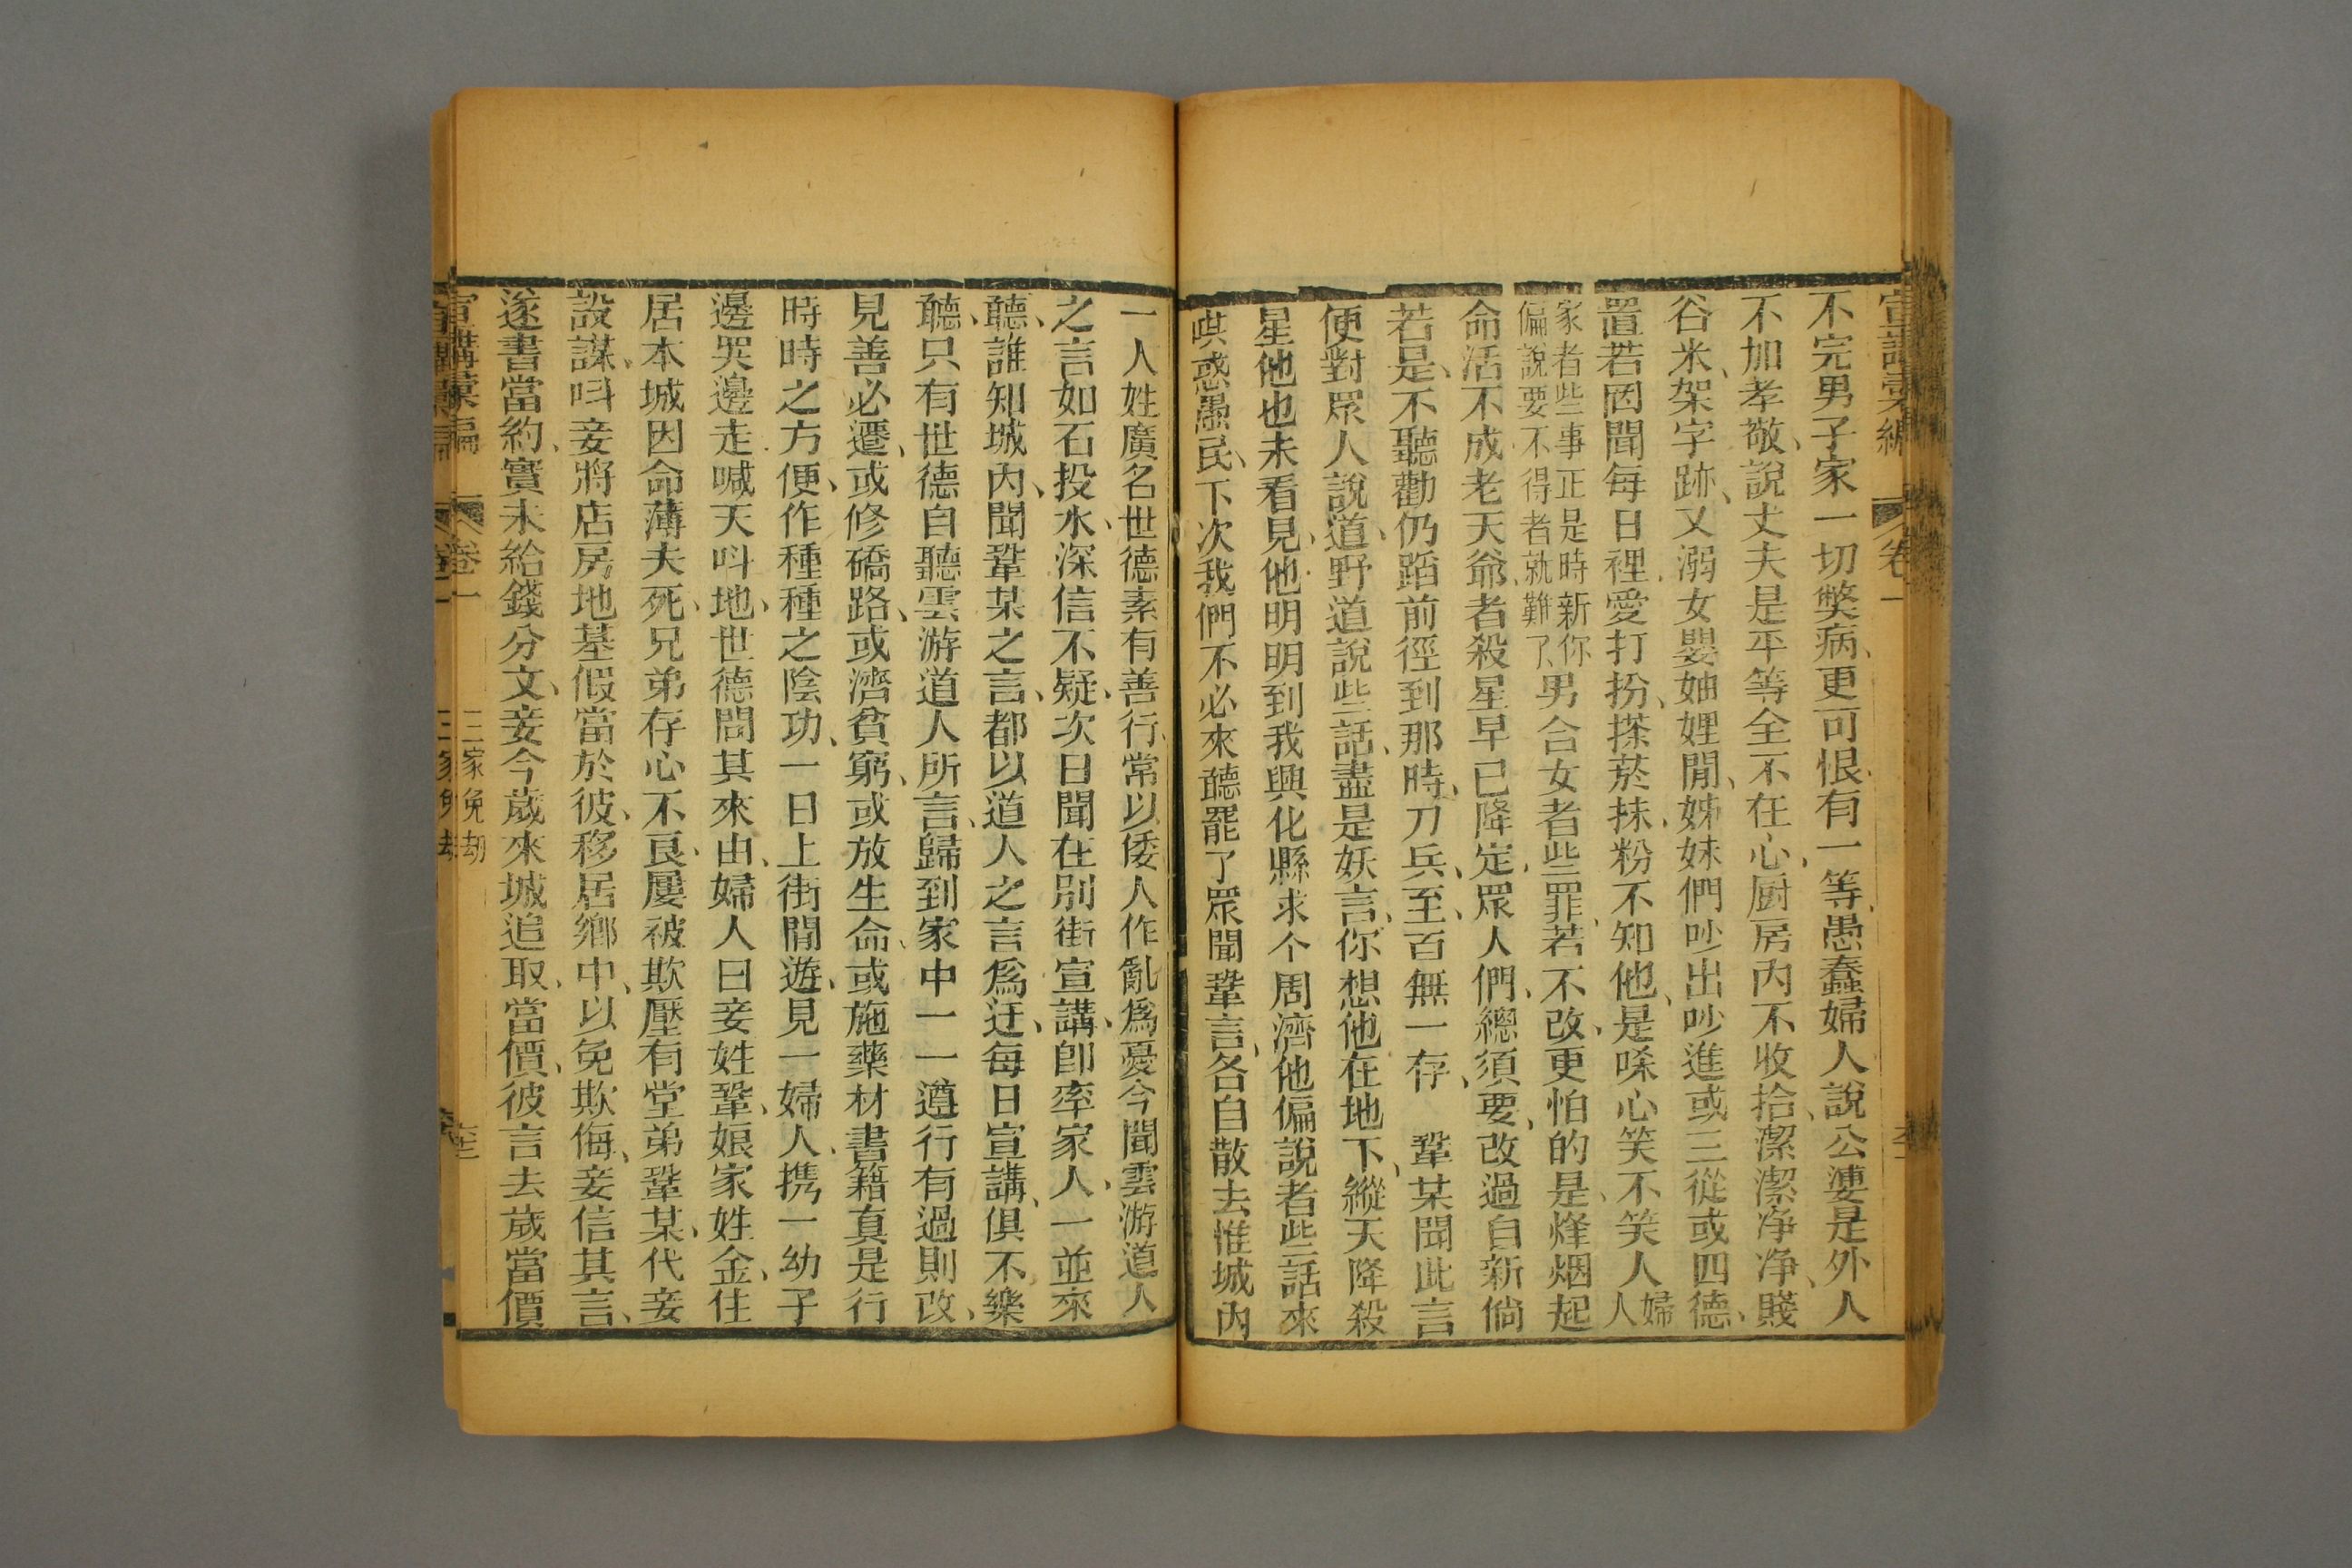 宣講彙編 卷一
不完男子家一切獘病、更可恨、有一等、愚蠢婦人說公凄是外人
不加孝敬、說丈夫是平等全不在心、厨房內不收拾、潔潔净净、賤
谷米、架字跡、又溺女嬰妯娌閒、姊妹們吵出吵進或三從或四德、
置若罔聞每日裡、愛打扮、搽菸抹、粉不知他、是嗦心笑不笑人婦人
家者些事正是時新你偏說要不得者就難了、男合女者些罪、若不改、更怕的是、烽烟起
命活不成老天爺、者殺星早已降定、眾人們、總須要、改過自新倘
若是、不聽勸仍蹈前徑到那時、刀兵、至、百無一存、 鞏某聞此言
便對眾人說道、野道說些話、盡是妖言、你想他在地下、縱天降殺
星他也未看見、他明明到我興化縣求个周濟他偏說者些話來
哄惑愚民、下次我們不必來聽罷了眾聞鞏言、各自散去惟城內
一人姓廣名世德素有善行、常以倭人作亂爲憂今聞雲游道人
之言如石投水、深信不疑、次日聞在別街宣講、卽率家人、一並來
聽、誰知城內、聞鞏某之言、都以道人之言爲迂、每日宣講、俱不樂
聽、只有世德自聽雲游道人所言、歸到家中一一遵行有過則改、
見善必遷、或修礄路、或濟貧窮、或放生命、或施藥材書籍真是行
時時之方便、作種種之陰功、一日上街閒遊、見一婦人、携一幼子
邊哭邊走喊天呌地、世德問其來由、婦人曰妾姓鞏、娘家姓金、住
居本城因命薄夫死、兄弟存心不良、屢被欺壓有堂弟鞏某、代妾
設謀、呌妾將店房地基假當於彼、移居鄉中、以免欺侮、妾信其言、
遂書當約、實未給錢分文、妾今歲來城追取、當價、彼言去歲當價
宣講彙編 卷一 三家免劫